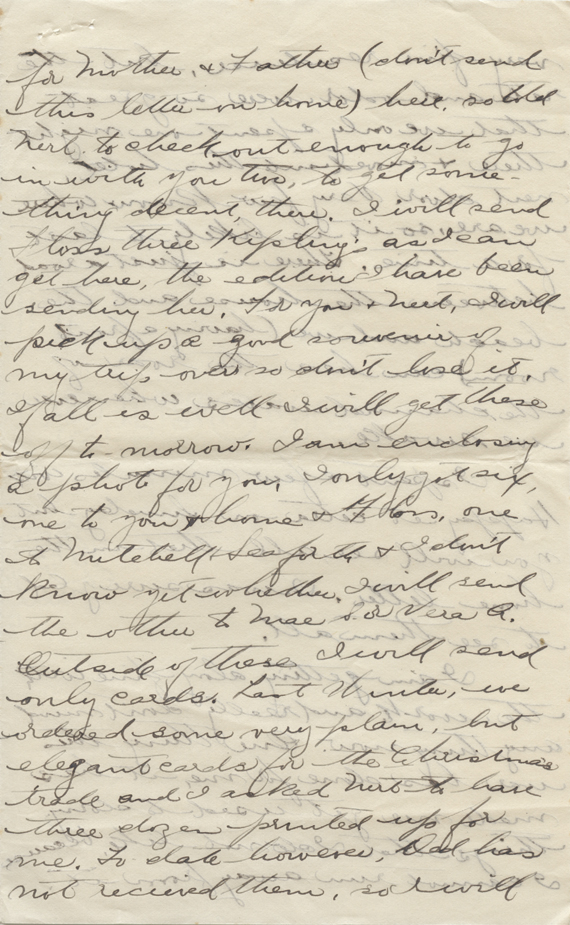 for Mother, & Father (don't send
this letter on home) here, so told
Nert to check out enough to go
in with you two, to get some-
thing decent, there. I will send
Floss three Kipling's as I can
get here, the edition I have been
sending her. For you & Nert, I will
pick up a good souvenir of
my trip over so don't lose it.
If all is well I will get these
off to-morrow. I am enclosing
a photo for you. I only got six,
one to you & home & Floss, one
to Mitchell, Seaforth & I don't
know yet whether I will send
the other to Mae S. or Vera A.
Outside of these I will send
only cards. Last Winter, we
ordered some very plain, but
elegant cards for the Christmas
trade and I asked Nert to have
three dozen printed up for
me. To date however, Dad has
not recieved them, so I will